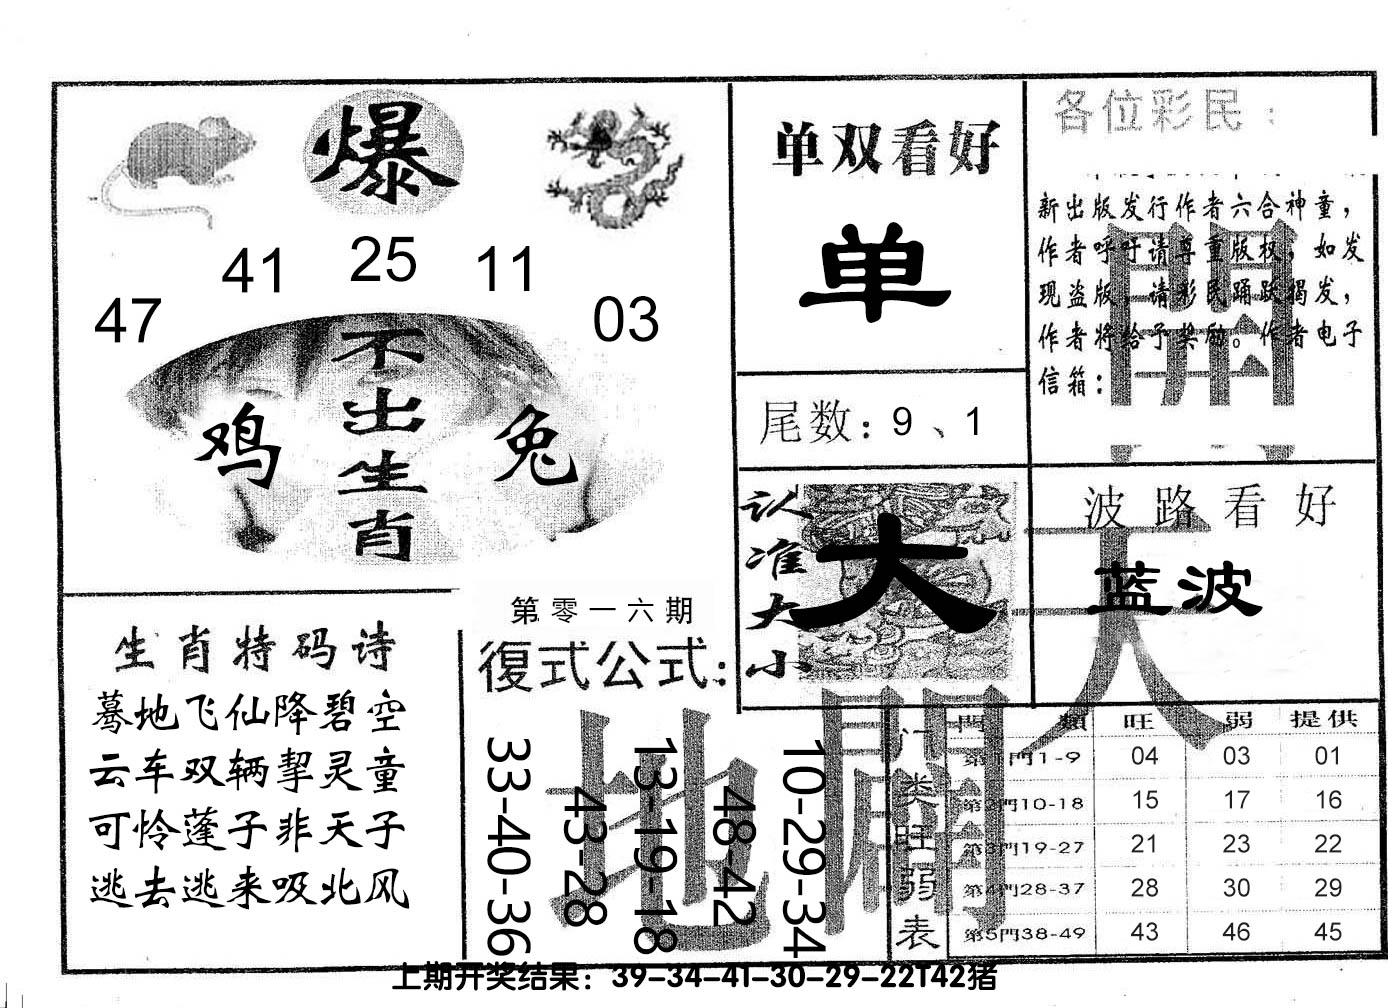 爆
41 25 11
47 03
不出生肖
鸡 兔
单双看好
单
尾数：9、1
各位彩民：
新出版发行作者六合神童，
作者呼吁请尊重版权，如发
现盗版，请彩民踊跃揭发，
作者将给予奖励。作者电子
信箱：
開
认准大小
大
波路看好
蓝波
天
生肖特码诗
蓦地飞仙降碧空
云车双辆挈灵童
可怜蓬子非天子
逃去逃来吸北风
第零一六期
復式公式：
33-40-36
43-28
13-19-18
48-42
10-29-34
地
開
门类旺弱表
門類 旺 弱 提供
第1門1-9 04 03 01
第2門10-18 15 17 16
第3門19-27 21 23 22
第4門28-37 28 30 29
第5門38-49 43 46 45
上期开奖结果：39-34-41-30-29-22T42猪